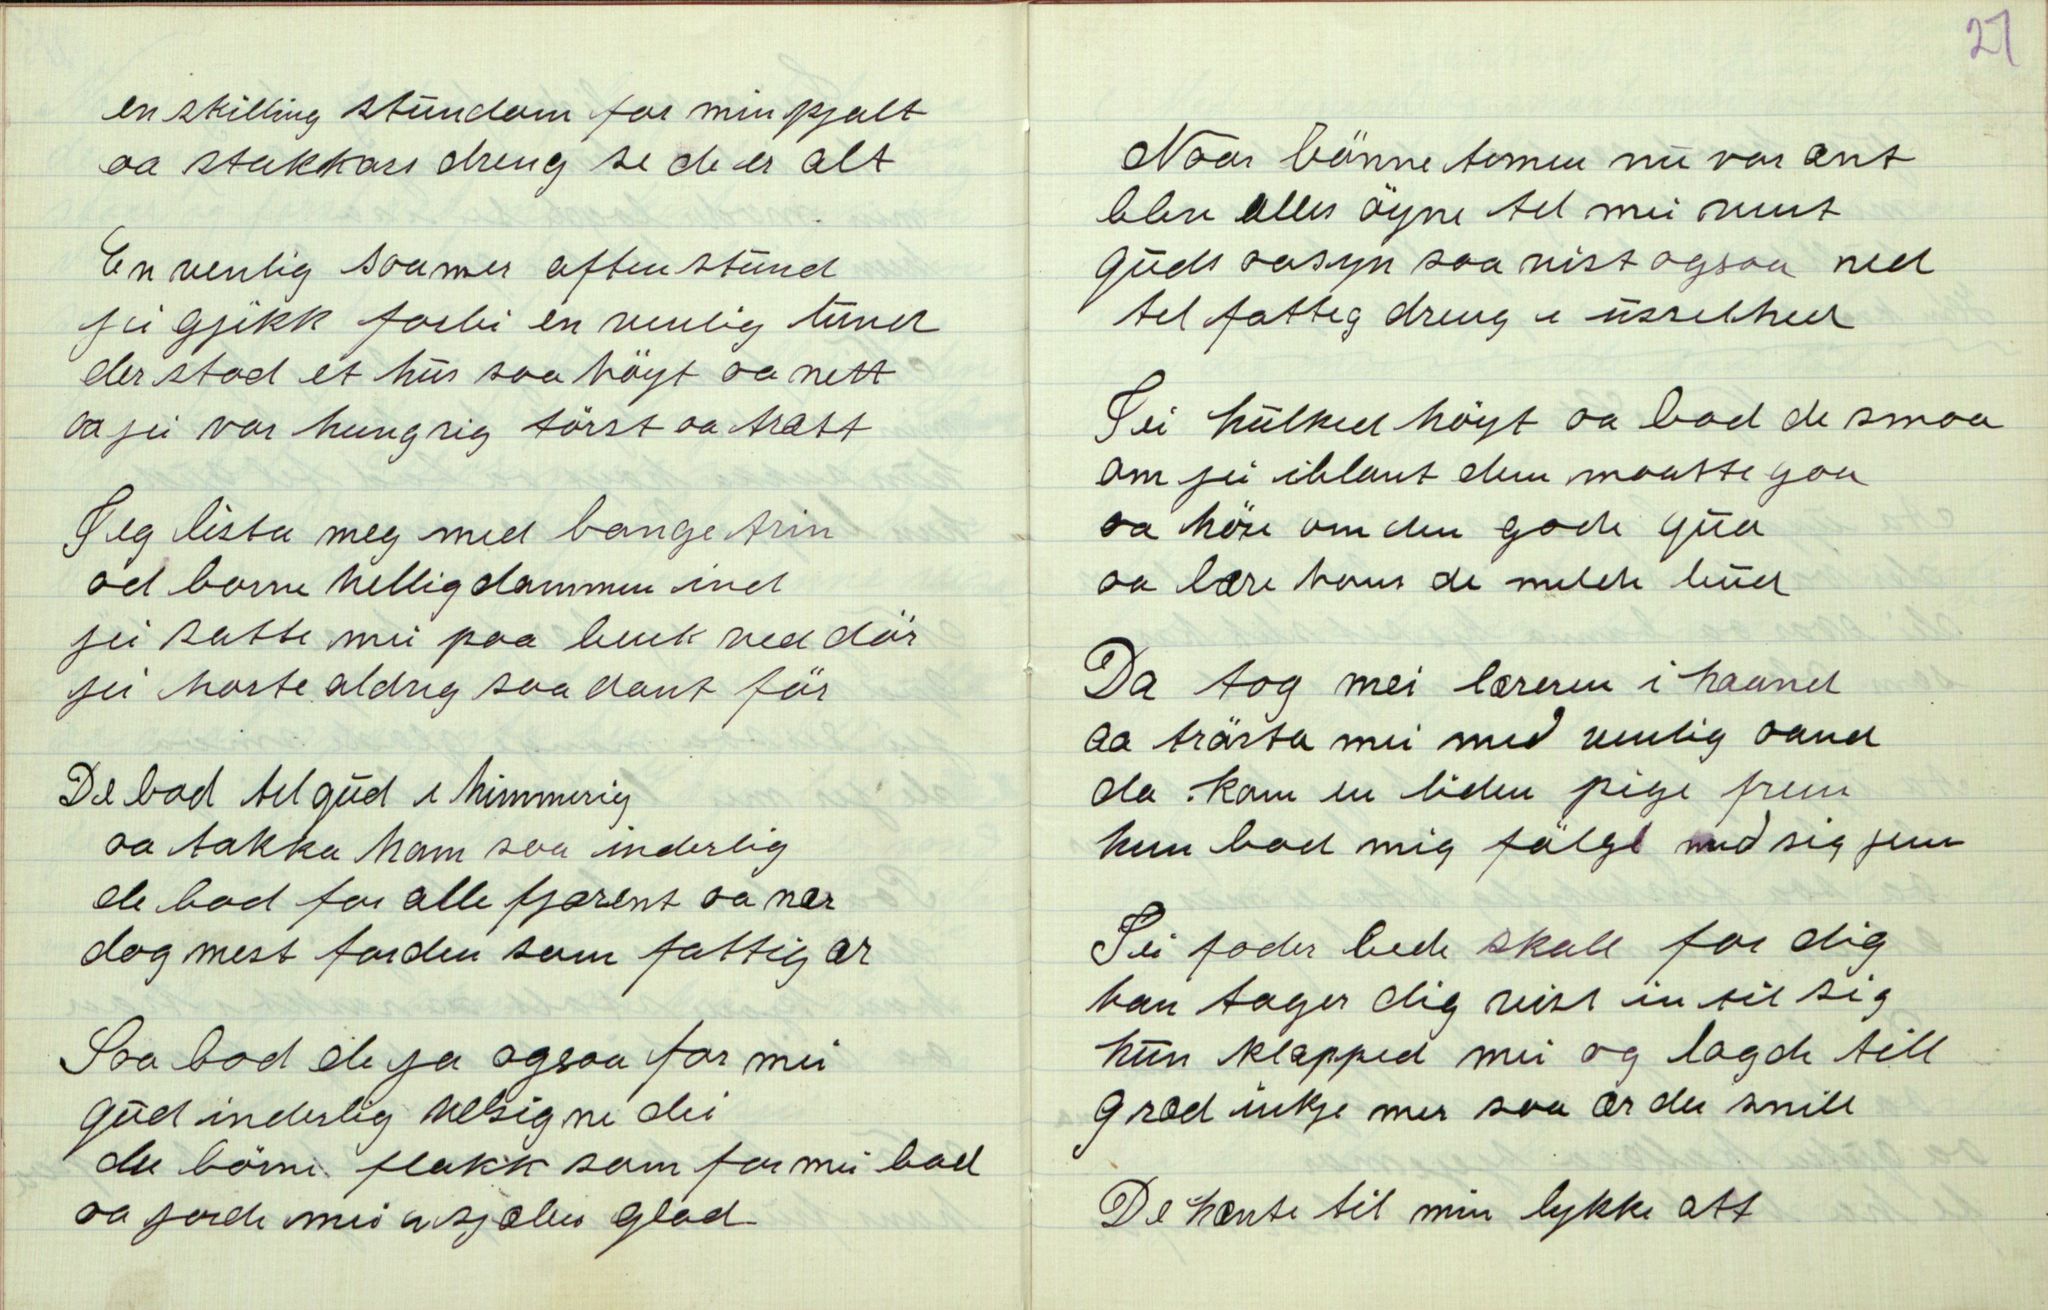 en skilling stundom for min pjalt
oa stakkars dreng se de er alt
En venlig soamer aftenstund
jei gjikk forbi en venlig lund
der stod et hus soa höyt oa nett
oa jei var hungrig törst oa trætt
Jeg lista meg med bange trin
ad barne helligdammen ind
jei satte mei paa benk ved dör
jei horte aldrig soadant för
De bad tel gud i himmerig
oa takka ham soa inderlig
de bad for alle fjærent oa nær
dog mest for den som fattig ær
Soa bad de ja ogsoa for mei
gud inderlig velsigne dei
du börne flakk som for mei bad
oa jorde mei i sjælen glad
27
Noar bönnetemen nu var ænt
blev alles öyne tel mei vent
guds oasyn soa vist ogsoa ned
tel fatteg dreng i usselhed
Jei hulked höyt oa bad de smoa
om jei iblant dem moatte goa
oa höre om den gode gud
oa lære hans de milde bud
Da tog mei læreren i haand
oa trösta mei med venlig oand
da kom en liden pige frem
hun bad mig fölge med sig jem
Jei fader bede skall for dig
han tager dig vist in til sig
hun klapped mei og lagde till
græd inkje mer soa ær du snill
De hænte til min lykke att